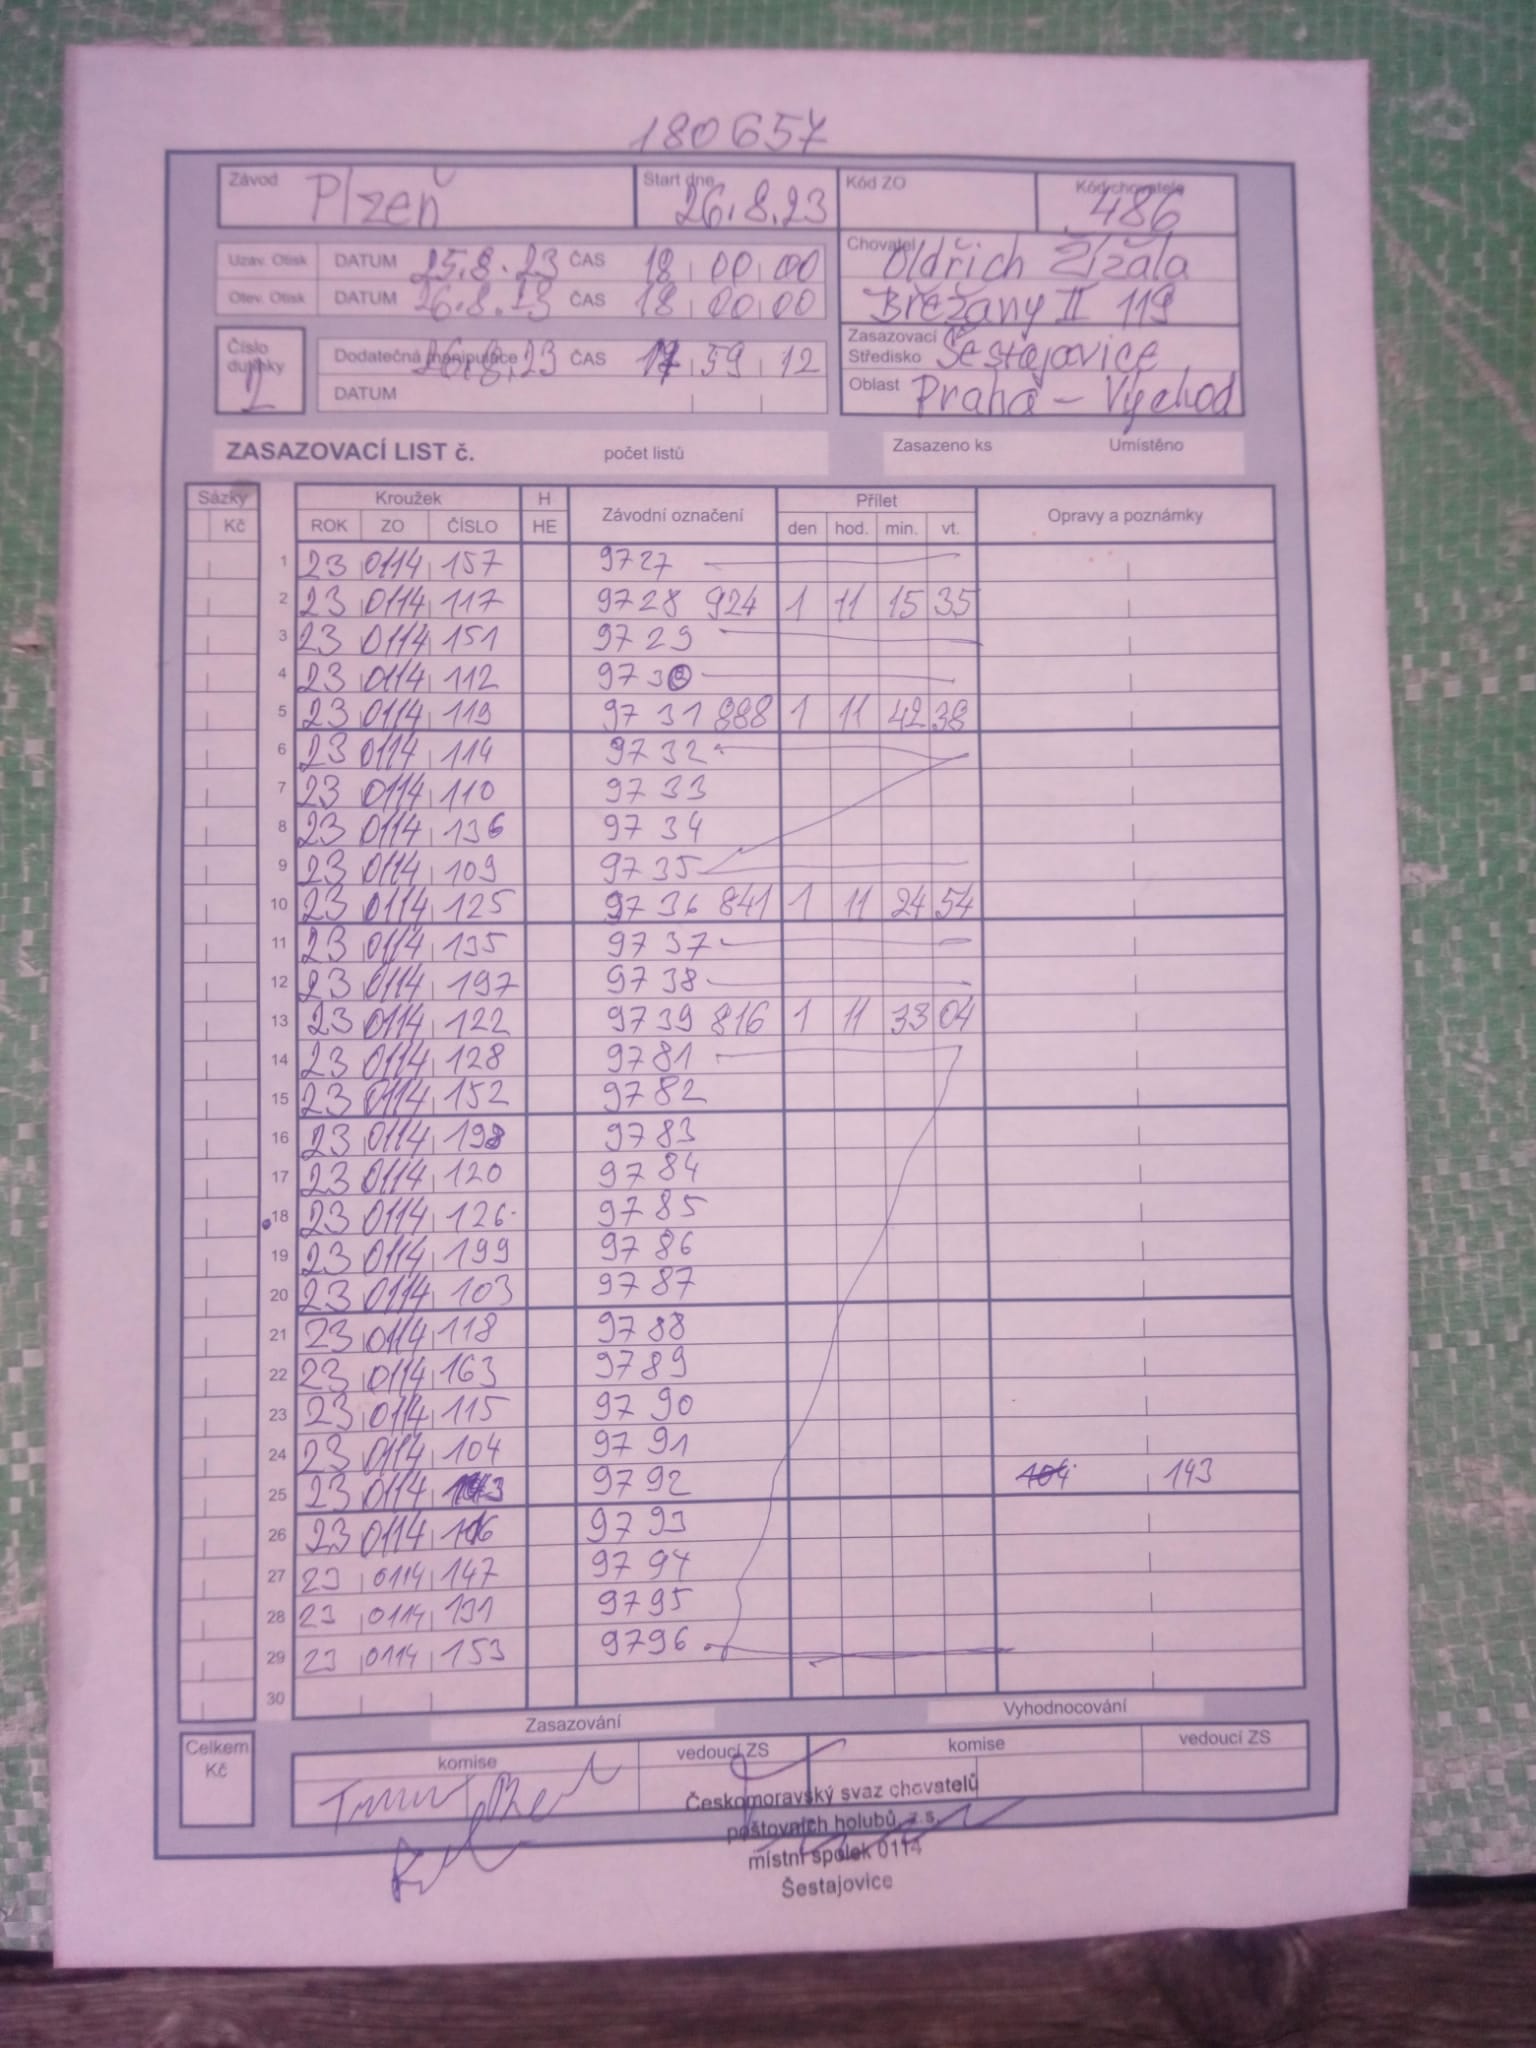 180657
Závod Plzeň Start dne 26.8.23 Kód ZO Kód chovatele 486
Uzáv. Otisk DATUM 25.8.23 ČAS 18 00 00
Chovatel Oldřich Žížala
Otev. Otisk DATUM 26.8.23 ČAS 18 00 00
Břežany II 119
Číslo dutinky 2 Dodatečná manipulace 26.8.23 ČAS 17 59 12
Zasazovací Středisko Šestajovice
DATUM
Oblast Praha - Východ
ZASAZOVACÍ LIST č. počet listů Zasazeno ks Umístěno
Sázky Kroužek H Závodní označení Přílet Opravy a poznámky
Kč ROK ZO ČÍSLO HE den hod. min. vt.
1 23 0114 157 9727
2 23 0114 117 9728 924 1 11 15 35
3 23 0114 151 9729
4 23 0114 112 9730
5 23 0114 119 9731 888 1 11 42 38
6 23 0114 114 9732
7 23 0114 110 9733
8 23 0114 136 9734
9 23 0114 109 9735
10 23 0114 125 9736 841 1 11 24 54
11 23 0114 135 9737
12 23 0114 197 9738
13 23 0114 122 9739 816 1 11 33 04
14 23 0114 128 9781
15 23 0114 152 9782
16 23 0114 198 9783
17 23 0114 120 9784
18 23 0114 126 9785
19 23 0114 199 9786
20 23 0114 103 9787
21 23 0114 118 9788
22 23 0114 163 9789
23 23 0114 115 9790
24 23 0114 104 9791
25 23 0114 143 9792 104 143
26 23 0114 106 9793
27 23 0114 147 9794
28 23 0114 131 9795
29 23 0114 153 9796
30
Zasazování Vyhodnocování
Celkem Kč komise vedoucí ZS komise vedoucí ZS
Českomoravský svaz chovatelů
poštovních holubů, z.s.
místní spolek 0114
Šestajovice